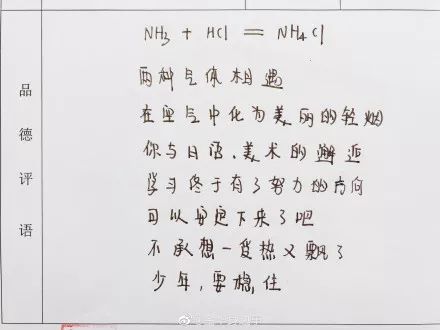 品德评语
NH3 + HCl = NH4Cl
两种气体相遇
在空气中化为美丽的轻烟
你与日语、美术的邂逅
学习终于有了努力的方向
可以安定下来了吧
不承想一受热又飘了
少年,要稳住